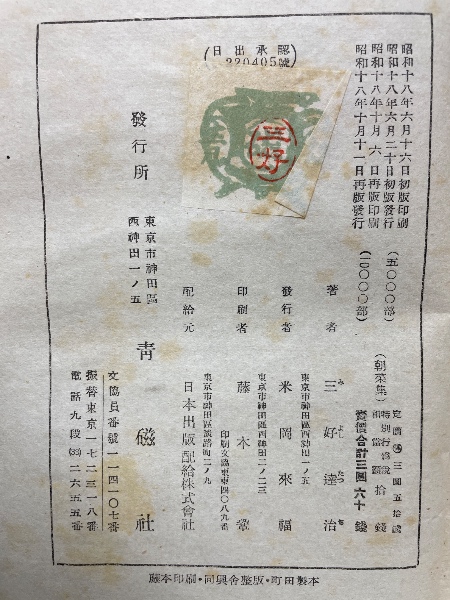 昭和十八年六月十六日初版印刷
昭和十八年六月二十日初版發行
昭和十八年十月六日再版印刷
昭和十八年十月十一日再版發行
(五〇〇〇部)
(二〇〇〇〇部)
(朝菜集)
定價㊷三圓五十錢
特別行爲税
相當額 拾錢
賣價合計三圓六十錢
(日出承認
220405號)
三好
著者 三好達治
み よし たつ ぢ
東京市神田區西神田一ノ五
發行者 米岡來福
東京市神田區西神田二ノ二三
印刷者 藤木
印刷文協東東四〇八九番
東京市神田區淡路町二ノ九
配給元 日本出版配給株式會社
發行所
東京市神田區
西神田一ノ五
青磁社
文協員番號一一四一〇七番
振替東京一七二三一八番
電話九段(33)二六五五番
藤本印刷・同興舍整版・町田製本